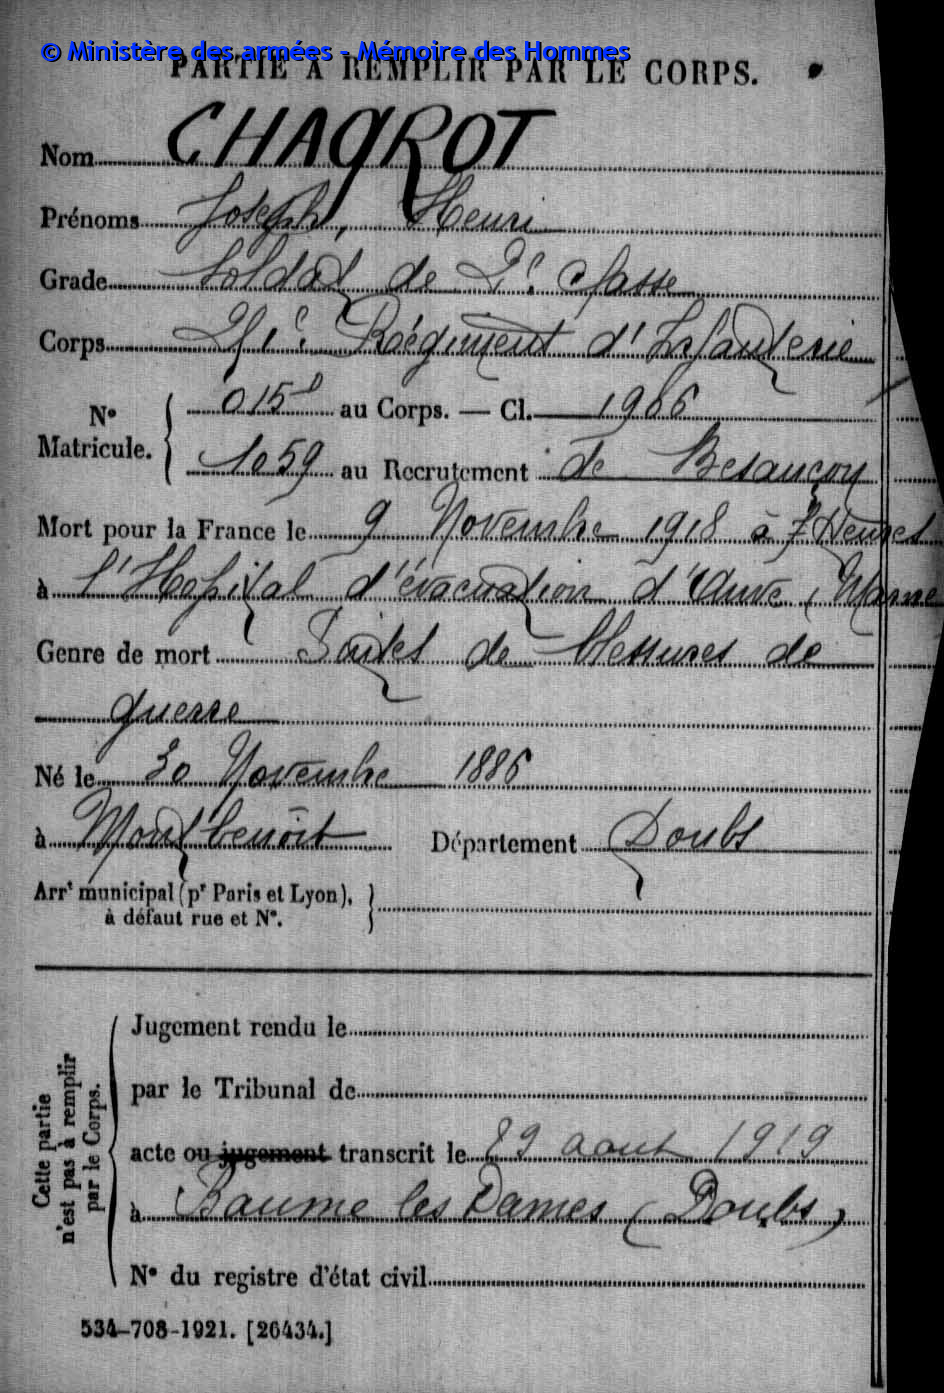 © Ministère des armées - Mémoire des Hommes
PARTIE À REMPLIR PAR LE CORPS.
Nom CHAQROT
Prénoms Joseph, Henri
Grade Soldat de 2e classe
Corps Régiment d'Infanterie
N° Matricule. au Corps. — Cl. 1906
1059 au Recrutement de Besançon
Mort pour la France le 9 Novembre 1918 à 7 Heures
à l'Hopital d'évacuation d'Auve (Marne
Genre de mort Suites de blessures de
guerre
Né le 30 Novembre 1886
à Montbenoît Département Doubs
Arrt municipal (pr Paris et Lyon),
à défaut rue et N°.
Cette partie
n'est pas à remplir
par le Corps.
Jugement rendu le
par le Tribunal de
acte ou jugement transcrit le 29 aout 1919
à Baume les Dames (Doubs)
N° du registre d'état civil
534-708-1921. [26434.]